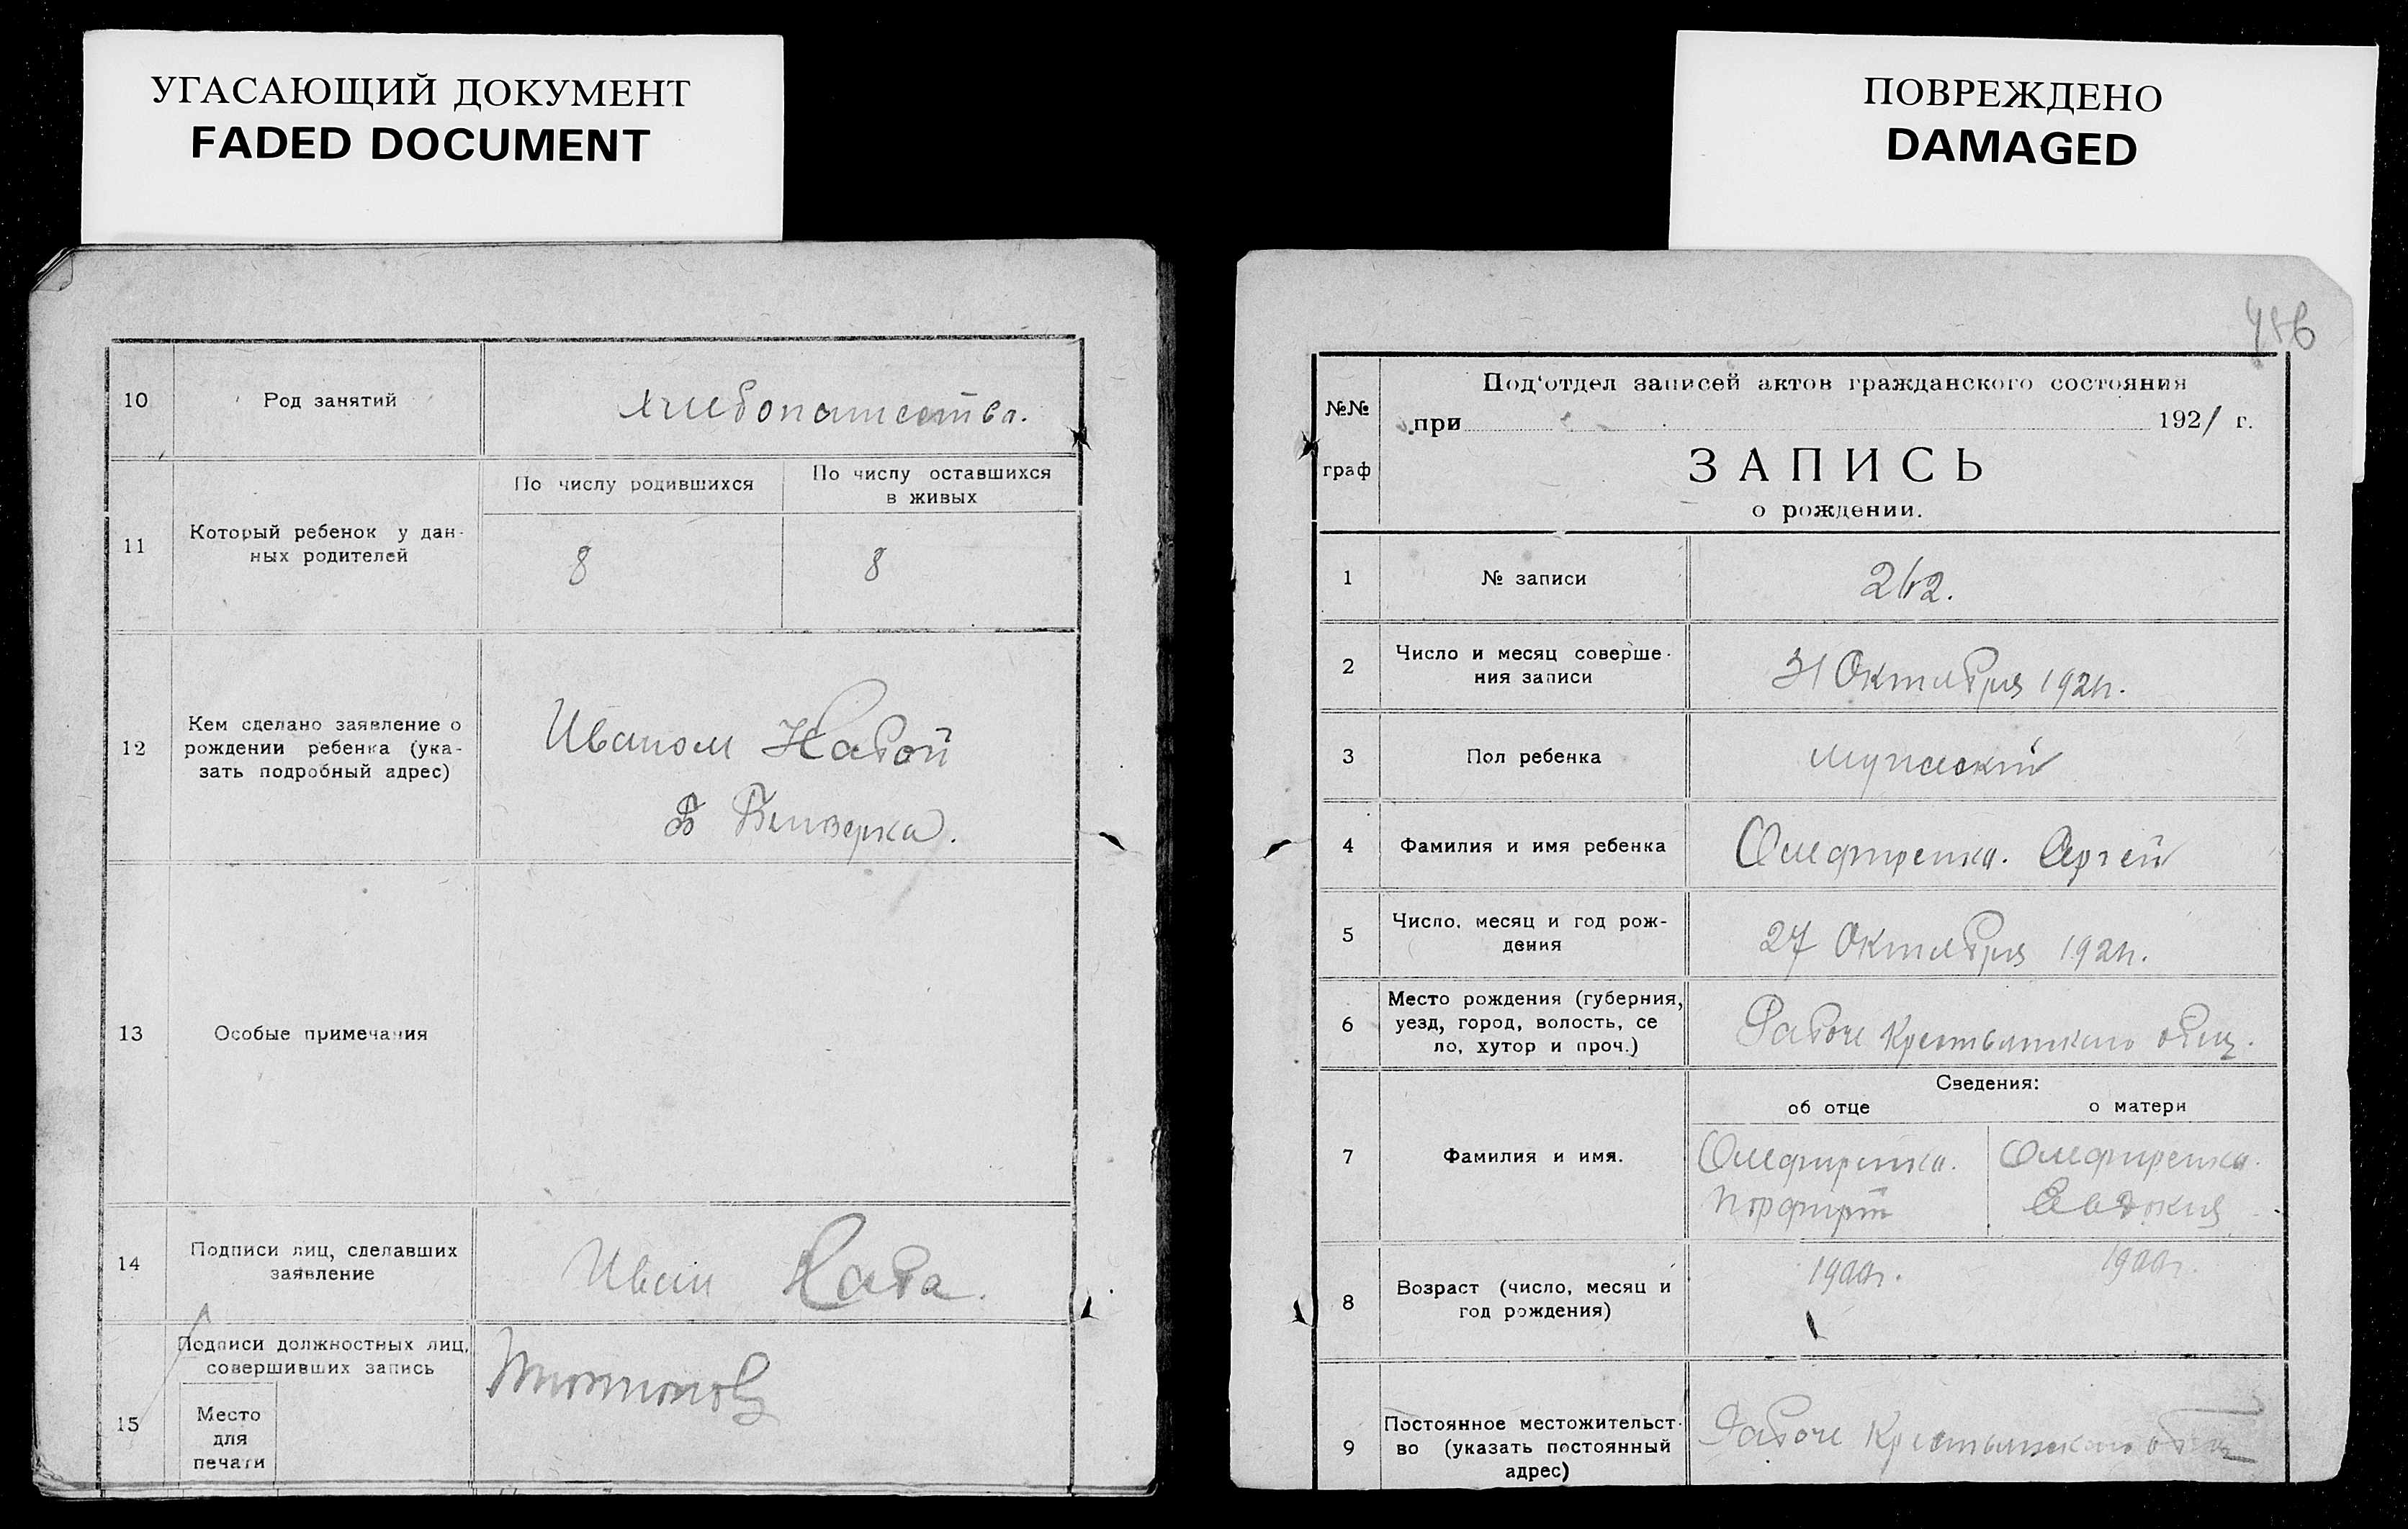 УГАСАЮЩИЙ ДОКУМЕНТ
FADED DOCUMENT
10
Род занятий
хлебопашества.
11
Который ребенок у дан-
ных родителей
По числу родившихся
По числу оставшихся
в живых
8
8
12
Кем сделано заявление о
рождении ребенка (ука-
зать подробный адрес)
Иваном
13
Особые примечания
14
Подписи лиц, сделавших
заявление
Иван
15
Подписи должностных лиц,
совершивших запись
Место
для
печати
ПОВРЕЖДЕНО
DAMAGED
№№
граф
Под'отдел записей актов гражданского состояния
при 1921 г.
ЗАПИСЬ
о рождении.
1
№ записи
262.
2
Число и месяц соверше-
ния записи
31 Октября 1921г.
3
Пол ребенка
мужский
4
Фамилия и имя ребенка
Олефиренка. Сергей
5
Число, месяц и год рож-
дения
27 Октября 1921г.
6
Место рождения (губерния,
уезд, город, волость, се
ло, хутор и проч.)
Рабоче Крестьянского общ.
7
Фамилия и имя.
Сведения:
об отце
о матери
Олефиренка.
Порфирий
Олефиренка.
Евдокия
8
Возраст (число, месяц и
год рождения)
1900г.
1900г.
9
Постоянное местожительст-
во (указать постоянный
адрес)
Рабоче Крестьянского общ